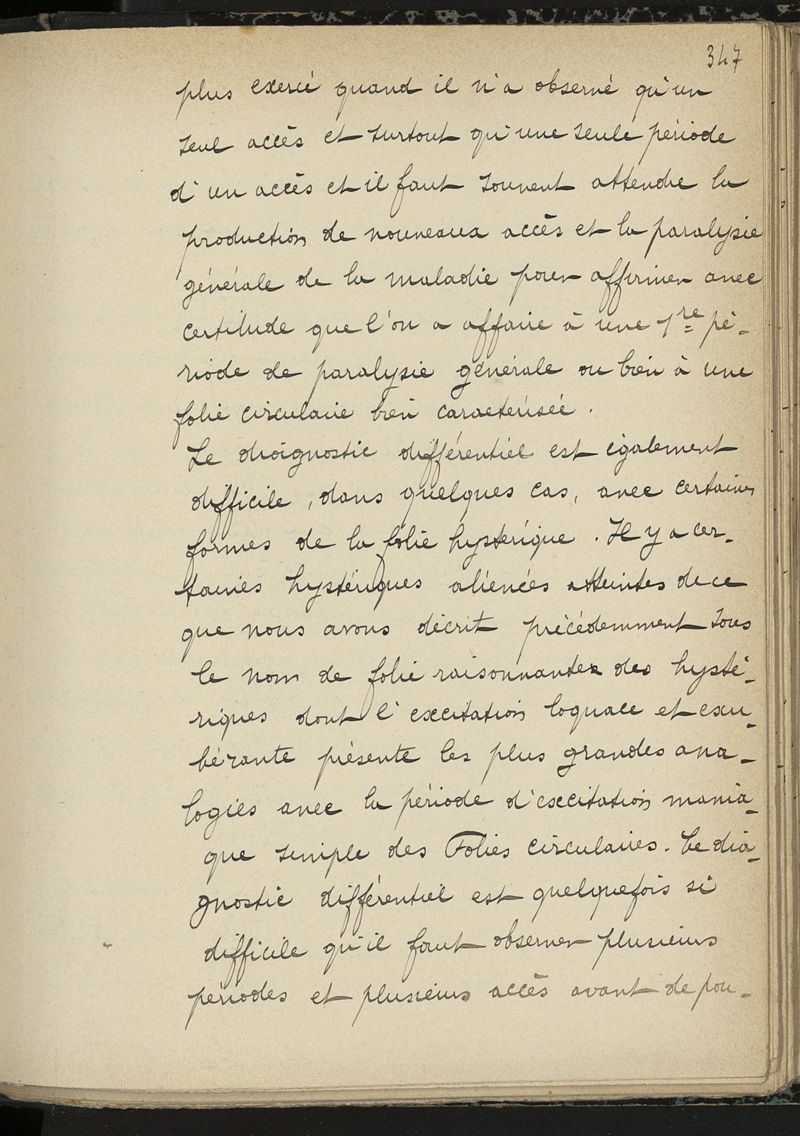 347
plus exercé quand il n'a observé qu'un
seul accès et surtout qu'une seule période
d'un accès et il faut souvent attendre la
production de nouveaux accès et la paralysie
générale de la maladie pour affirmer avec
certitude que l'on a affaire à une 1re pé-
riode de paralysie générale ou bien à une
folie circulaire bien caractérisée.
Le diagnostic différentiel est également
difficile, dans quelques cas, avec certaines
formes de la folie hystérique. Il y a cer-
taines hystériques aliénées atteintes de ce
que nous avons décrit précédemment sous
le nom de folie raisonnante des hysté-
riques dont l'excitation loquace et exu-
bérante présente les plus grandes ana-
logies avec la période d'excitation mania-
que simple des Folies circulaires. Le dia-
gnostic différentiel est quelquefois si
difficile qu'il faut observer plusieurs
périodes et plusieurs accès avant de pou-